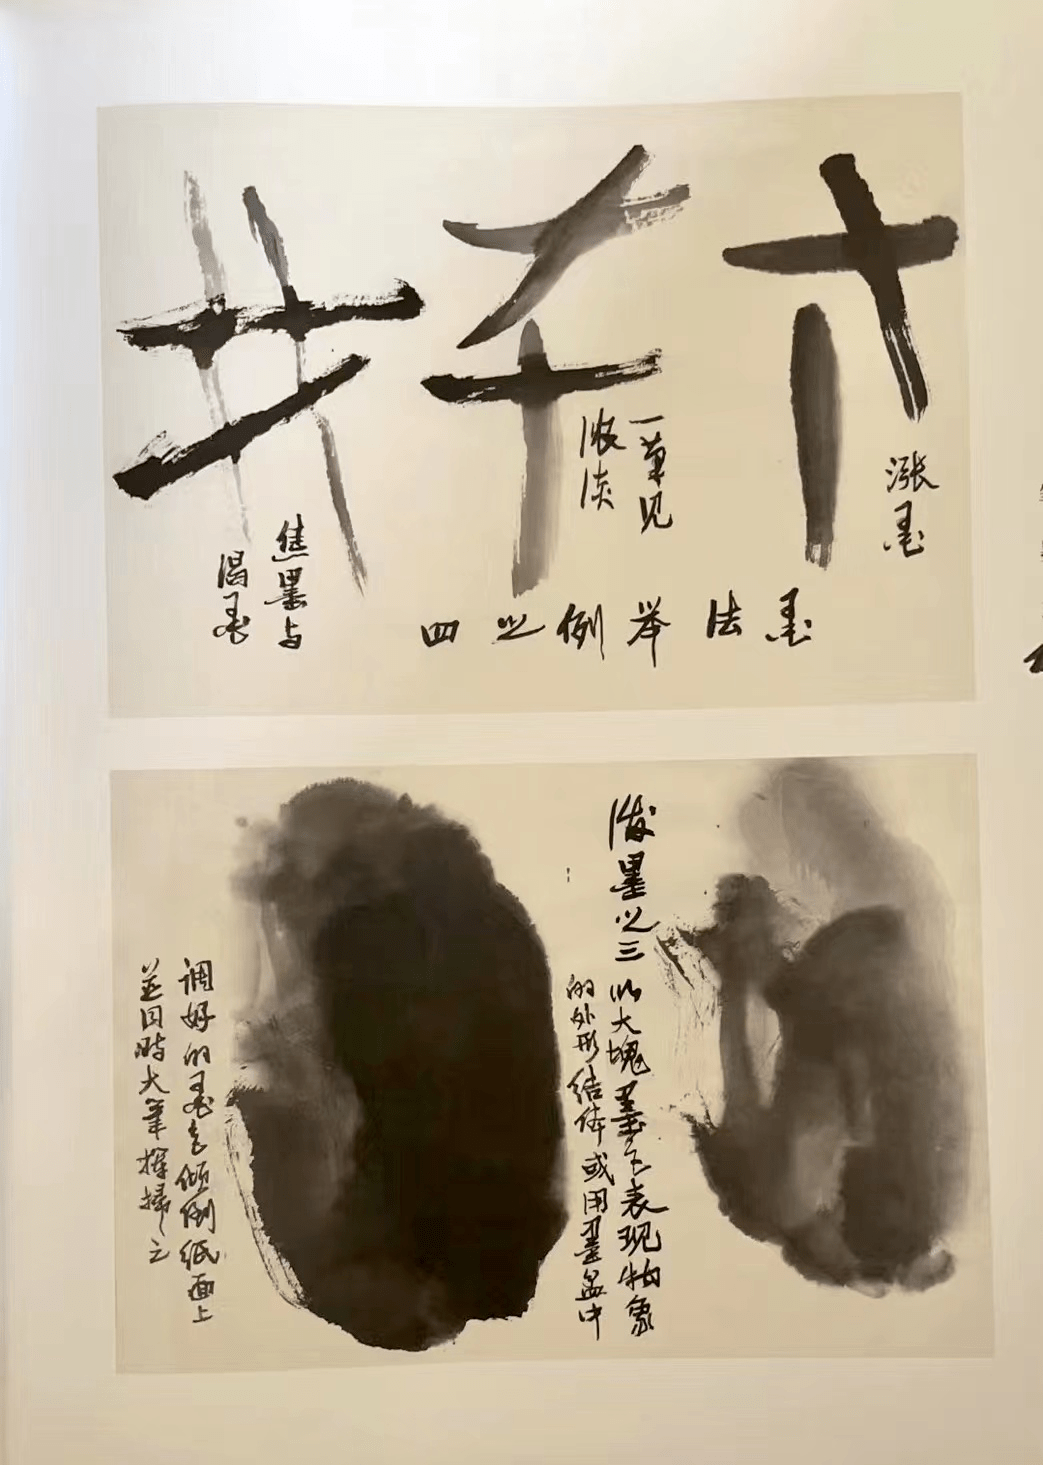 涨墨
一笔见
浓淡
焦墨与
渴墨
墨法举例之四
泼墨之三
以大块墨色表现物象
的外形结体或用墨盆中
调好的墨色倾倒纸面上
并同时大笔挥扫之